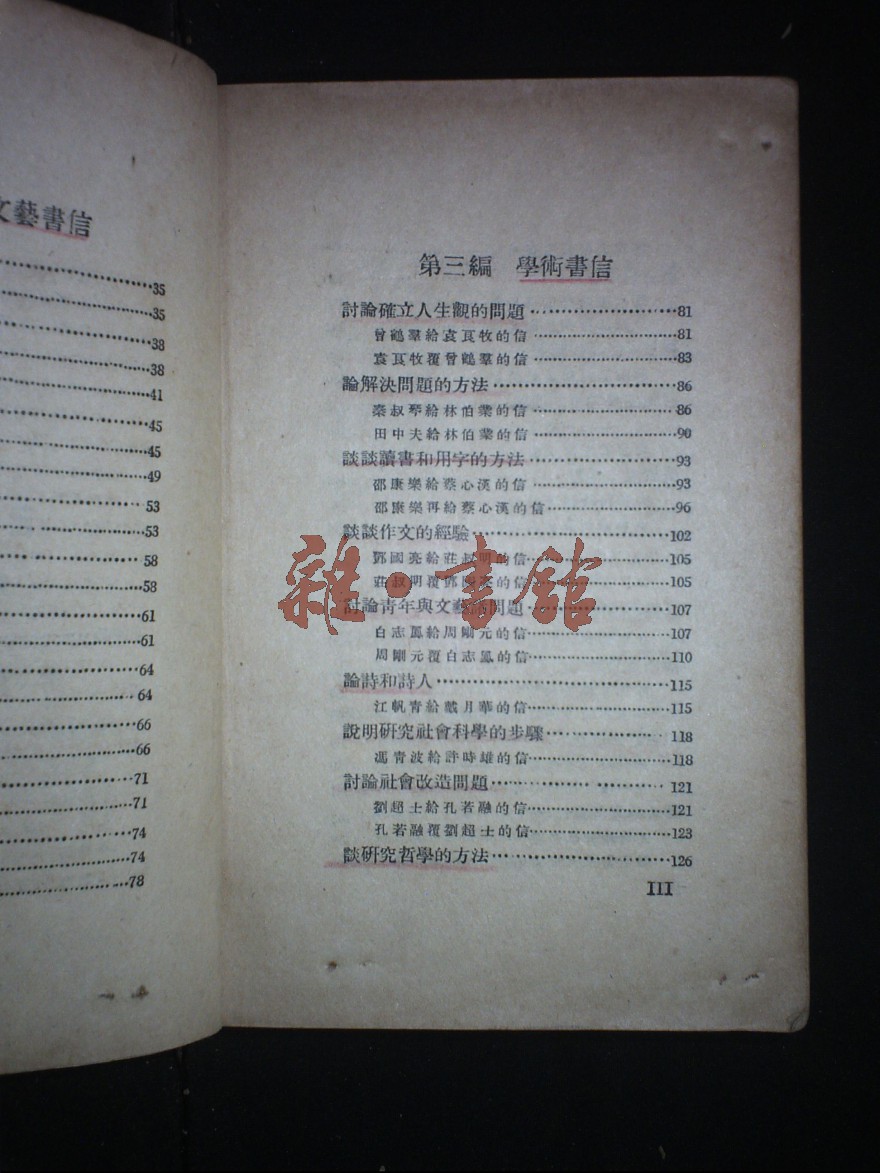 文藝書信
35
35
38
38
41
45
45
49
53
53
58
58
61
61
64
64
66
66
71
71
74
74
78
第三編 學術書信
討論確立人生觀的問題 81
曾鶴羣給袁良牧的信 81
袁良牧覆曾鶴羣的信 83
論解決問題的方法 86
秦叔琴給林伯業的信 86
田中夫給林伯業的信 90
談談讀書和用字的方法 93
邵康樂給蔡心漢的信 93
邵康樂再給蔡心漢的信 96
談談作文的經驗 102
鄧國亮給莊叔明的信 105
莊叔明覆鄧國亮的信 105
討論青年與文藝諸問題 107
白志鳳給周剛元的信 107
周剛元覆白志鳳的信 110
論詩和詩人 115
江帆青給戴月華的信 115
說明研究社會科學的步驟 118
馮青波給許時雄的信 118
討論社會改造問題 121
劉超士給孔若融的信 121
孔若融覆劉超士的信 123
談研究哲學的方法 126
III
雜·書館